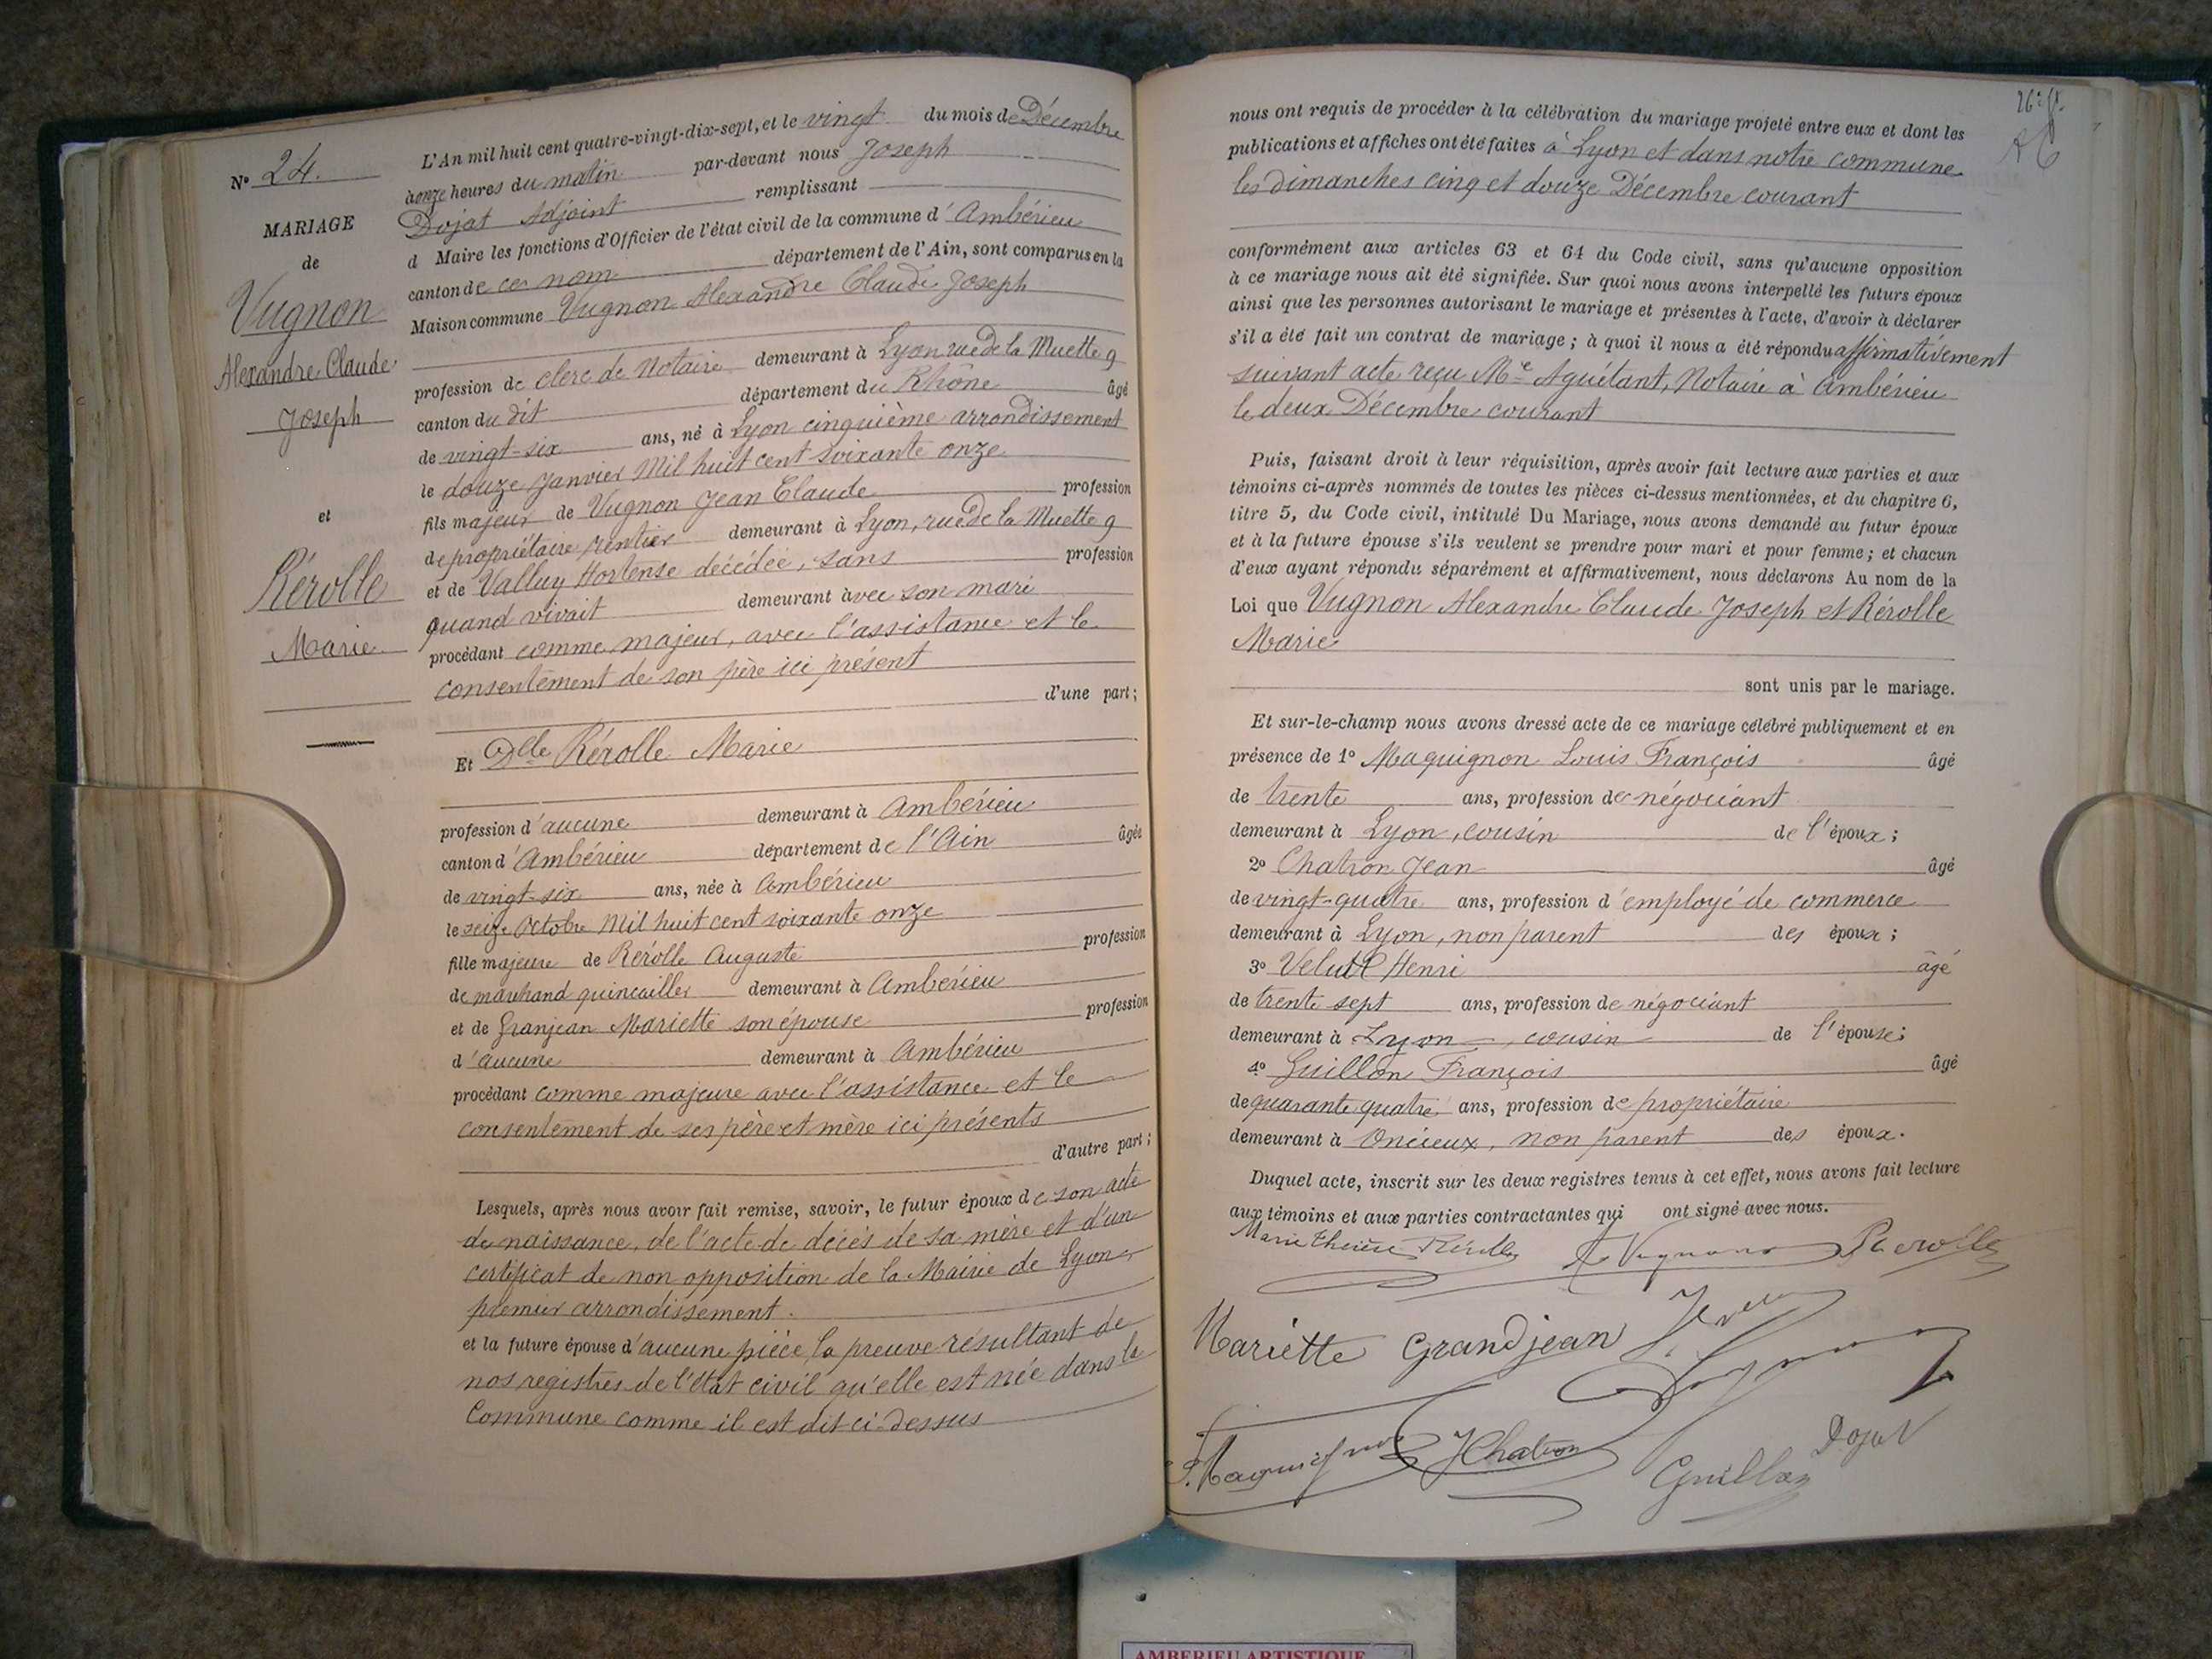 N° 24.
MARIAGE
de
Vugnon
Alexandre Claude
Joseph
et
Rérolle
Marie
L'An mil huit cent quatre-vingt-dix-sept, et le vingt du mois de Décembre
à onze heures du matin par-devant nous Joseph
Dojat Adjoint remplissant
d Maire les fonctions d'Officier de l'état civil de la commune d'Ambérieu
canton de ce nom département de l'Ain, sont comparus en la
Maison commune Vugnon Alexandre Claude Joseph
profession de clerc de Notaire demeurant à Lyon rue de la Muette 9
canton du dit département du Rhône âgé
de vingt-six ans, né à Lyon cinquième arrondissement
le douze Janvier Mil huit cent soixante onze
fils majeur de Vugnon Jean Claude profession
de propriétaire rentier demeurant à Lyon, rue de la Muette 9
et de Valluy Hortense décédée, sans profession
quand vivait demeurant avec son mari
procédant comme majeur, avec l'assistance et le
consentement de son père ici présent
d'une part;
Et Dlle Rérolle Marie
profession d'aucune demeurant à Ambérieu
canton d'Ambérieu département de l'Ain âgée
de vingt-six ans, née à Ambérieu
le seize Octobre Mil huit cent soixante onze
fille majeure de Rérolle Auguste profession
de marchand quincailler demeurant à Ambérieu
et de Granjean Mariette son épouse profession
d'aucune demeurant à Ambérieu
procédant comme majeure avec l'assistance et le
consentement de ses père et mère ici présents
d'autre part;
Lesquels, après nous avoir fait remise, savoir, le futur époux de son acte
de naissance, de l'acte de décès de sa mère et d'un
certificat de non opposition de la Mairie de Lyon
premier arrondissement.
et la future épouse d'aucune pièce, la preuve résultant de
nos registres de l'état civil qu'elle est née dans la
Commune comme il est dit ci-dessus
nous ont requis de procéder à la célébration du mariage projeté entre eux et dont les
publications et affiches ont été faites à Lyon et dans notre commune
les dimanches cinq et douze Décembre courant
conformément aux articles 63 et 64 du Code civil, sans qu'aucune opposition
à ce mariage nous ait été signifiée. Sur quoi nous avons interpellé les futurs époux
ainsi que les personnes autorisant le mariage et présentes à l'acte, d'avoir à déclarer
s'il a été fait un contrat de mariage; à quoi il nous a été répondu affirmativement
suivant acte reçu Me Aguétant, Notaire à Ambérieu
le deux Décembre courant
Puis, faisant droit à leur réquisition, après avoir fait lecture aux parties et aux
témoins ci-après nommés de toutes les pièces ci-dessus mentionnées, et du chapitre 6,
titre 5, du Code civil, intitulé Du Mariage, nous avons demandé au futur époux
et à la future épouse s'ils veulent se prendre pour mari et pour femme; et chacun
d'eux ayant répondu séparément et affirmativement, nous déclarons Au nom de la
Loi que Vugnon Alexandre Claude Joseph et Rérolle
Marie
sont unis par le mariage.
Et sur-le-champ nous avons dressé acte de ce mariage célébré publiquement et en
présence de 1° Maquignon Louis François âgé
de trente ans, profession de négociant
demeurant à Lyon, cousin de l'époux;
2° Chatron Jean âgé
de vingt-quatre ans, profession d'employé de commerce
demeurant à Lyon, non parent des époux;
3° Henri âgé
de trente sept ans, profession de négociant
demeurant à Lyon, cousin de l'épouse;
4° Guillon François âgé
de quarante quatre ans, profession de propriétaire
demeurant à Oncieux, non parent des époux.
Duquel acte, inscrit sur les deux registres tenus à cet effet, nous avons fait lecture
aux témoins et aux parties contractantes qui ont signé avec nous.
Marie Thérèse Rérolle A Vugnon Rerolle
Mariette Grandjean
L. Maquignon JChatron Guillon Dojat
AMBERIEU ARTISTIQUE